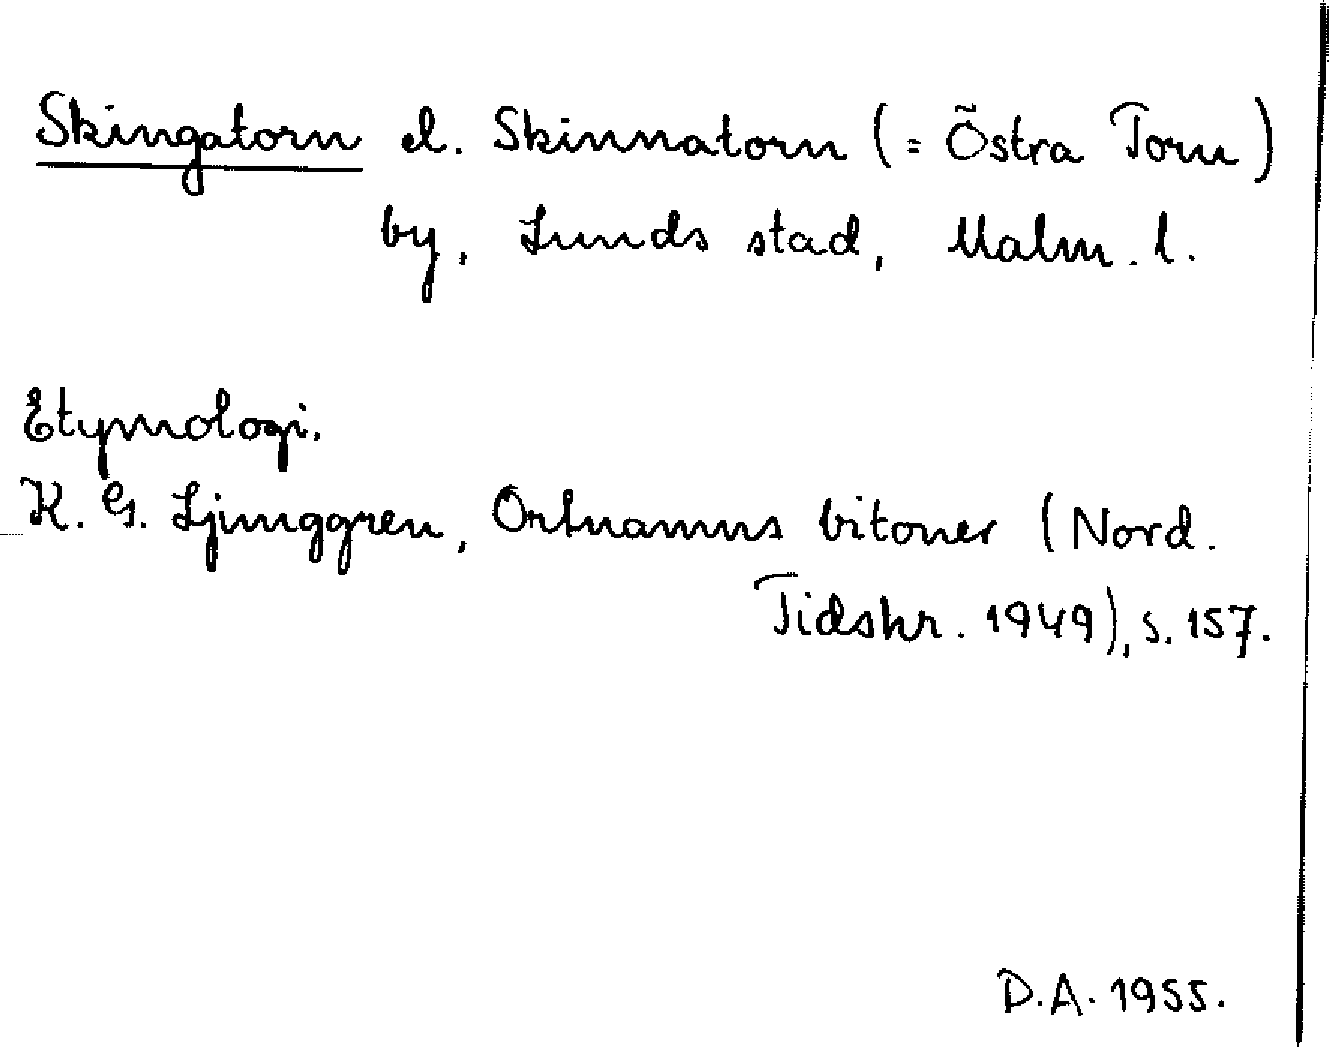 Skingatorn el. Skinnatorn (= Östra Torn)
by, Lunds stad, Malm. l.
Etymologi.
K. G. Ljunggren, Ortnamns bitoner (Nord.
Tidskr. 1949), s. 157.
D.A. 1955.